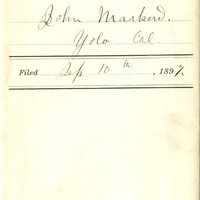 John Markerd.
Yolo Cal.
Filed Sep 10 th, 1897.